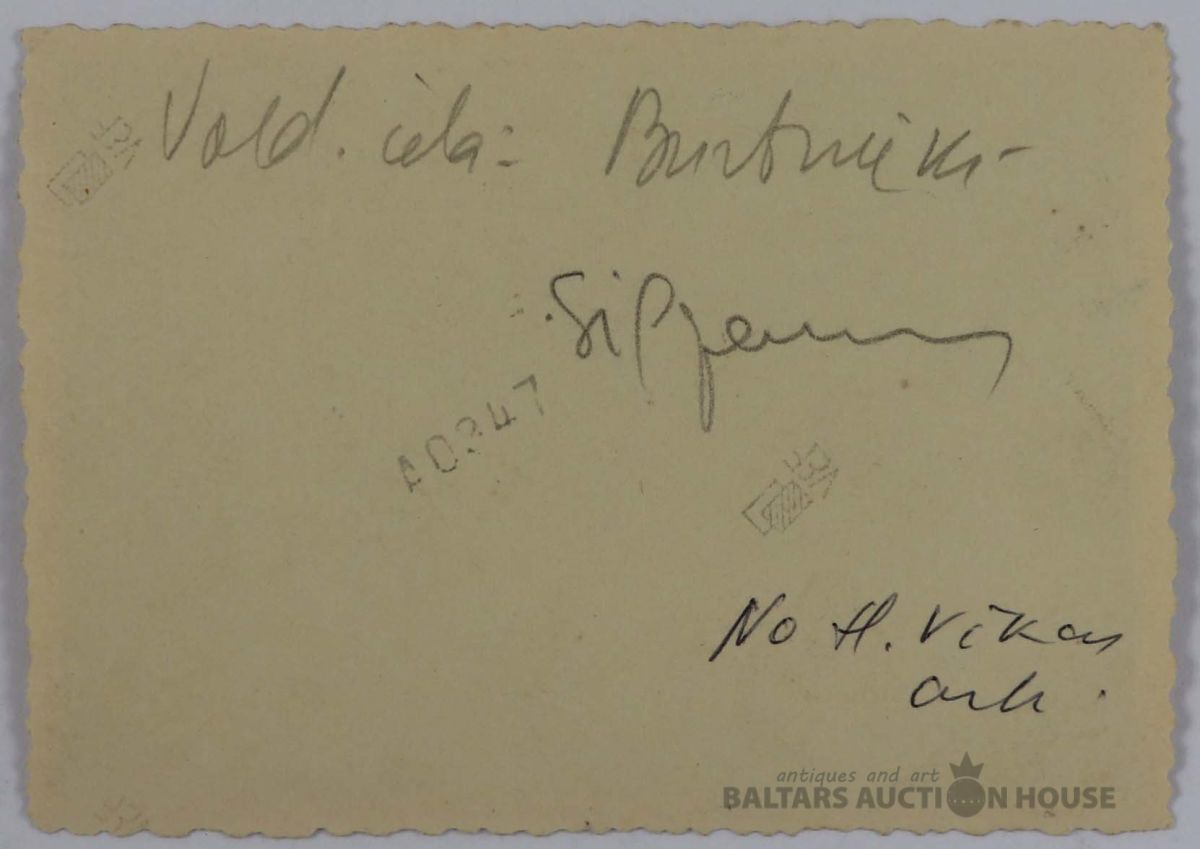 Vald. ielā: Burtnieks
A0347
No H. Vīkas
ark.
antiques and art
BALTARS AUCTION HOUSE